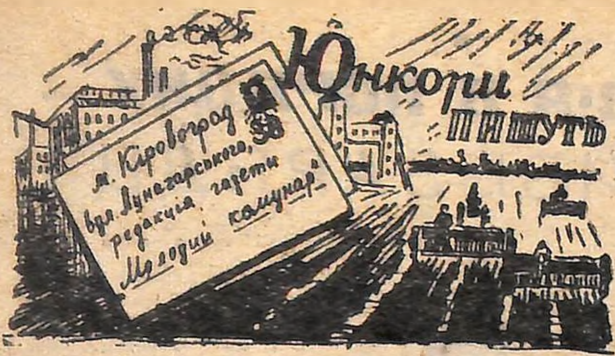 Юнкори
пишуть
м. Кіровоград
вул. Луначарського, 36
редакція газети
„Молодий комунар"